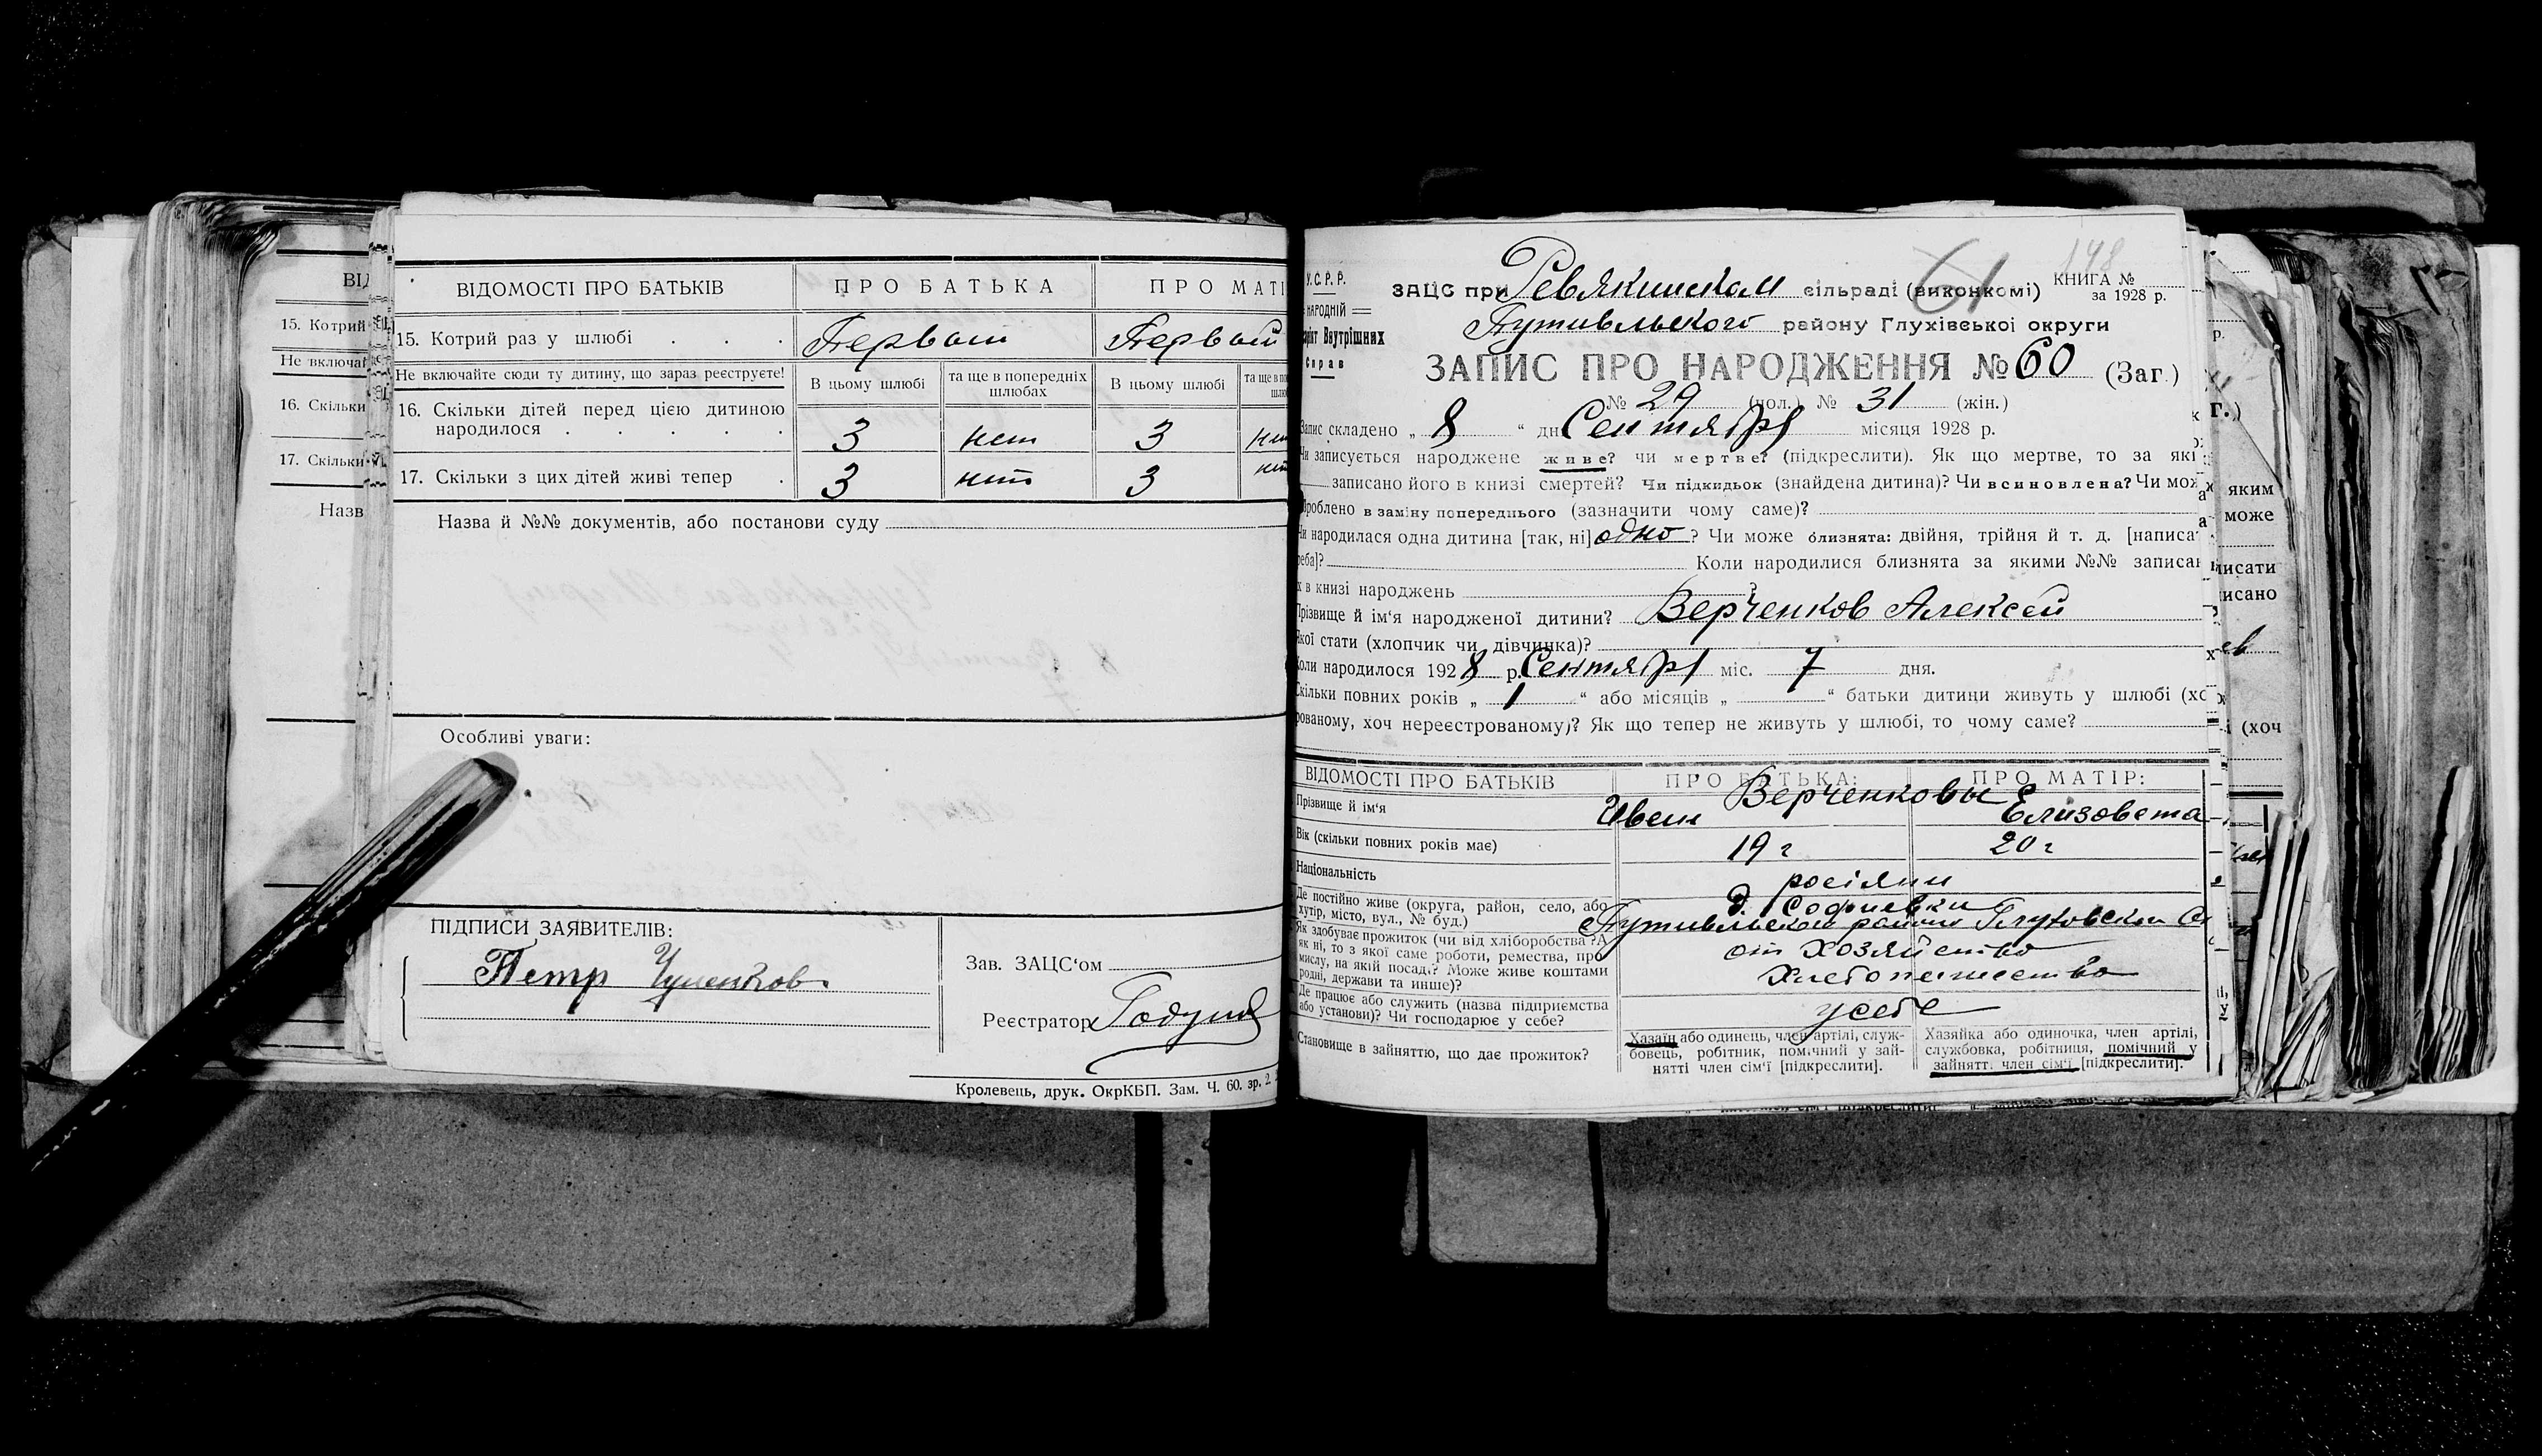 ВІДОМОСТІ ПРО БАТЬКІВ
ПРО БАТЬКА
ПРО МАТІ
15. Котрий раз у шлюбі . . .
Первый
Первый
Не включайте сюди ту дитину, що зараз реєструєте!
В цьому шлюбі
та ще в попередніх шлюбах
В цьому шлюбі
16. Скільки дітей перед цією дитиною
народилося . . . . .
3 нет 3
17. Скільки з цих дітей живі тепер .
3 нет 3
Назва й №№ документів, або постанови суду
Особливі уваги:
ПІДПИСИ ЗАЯВИТЕЛІВ:
Петр Чуненков
Зав. ЗАЦС'ом
Реєстратор
Кролевець, друк. ОкрКБП. Зам. Ч. 60, зр. 2.
ВІД
15. Котрий
Не включаі
16. Скільки
17. Скільки
Назв
У.С.Р.Р.
НАРОДНІЙ
Внутрішних
Справ
148
61
ЗАЦС при Ревякинском сільраді (виконкомі)
КНИГА №
за 1928 р.
Путивльского району Глухівської округи
ЗАПИС ПРО НАРОДЖЕННЯ № 60 (Заг.)
№ 29 (чол.) № 31 (жін.)
Запис складено „ 8 “ дн Сентября місяця 1928 р.
Чи записується народжене живе? чи мертве? (підкреслити). Як що мертве, то за які
записано його в книзі смертей? Чи підкидьок (знайдена дитина)? Чи всиновлена? Чи мож
зроблено в заміну попереднього (зазначити чому саме)?
Чи народилася одна дитина [так, ні] одно ? Чи може близнята: двійня, трійня й т. д. [написа
реба]? Коли народилися близнята за якими №№ записан
х в книзі народжень ?
Прізвище й ім'я народженої дитини? Верченков Алексей
Якої стати (хлопчик чи дівчинка)?
Коли народилося 1928 р. Сентября міс. 7 дня.
Скільки повних років „ 1 “ або місяців „ “ батьки дитини живуть у шлюбі (хо
рованому, хоч нереєстрованому)? Як що тепер не живуть у шлюбі, то чому саме?
ВІДОМОСТІ ПРО БАТЬКІВ
ПРО БАТЬКА:
ПРО МАТІР:
Прізвище й ім'я
Верченковы
Иван
Елизовета
Вік (скільки повних років має)
19 г
20 г
Національність
росіяни
Де постійно живе (округа, район, село, або
хутір, місто, вул., № буд.)
д. Софиевки
Путивльского района Глуховской
Як здобуває прожиток (чи від хліборобства? А
як ні, то з якої саме роботи, ремества, про
мислу, на якій посаді? Може живе коштами
родні, держави та инше)?
от Хозяйство
Хлебопашество
Де працює або служить (назва підприємства
або установи)? Чи господарює у себе?
у себе
Становище в зайняттю, що дає прожиток?
Хазаїн або одинець, член артілі, служ-
бовець, робітник, помічний у зай-
нятті член сім'ї [підкреслити].
Хазяйка або одиночка, член артілі,
службовка, робітниця, помічний у
зайнятті член сім'ї [підкреслити].
яким
може
исати
исано
(хоч